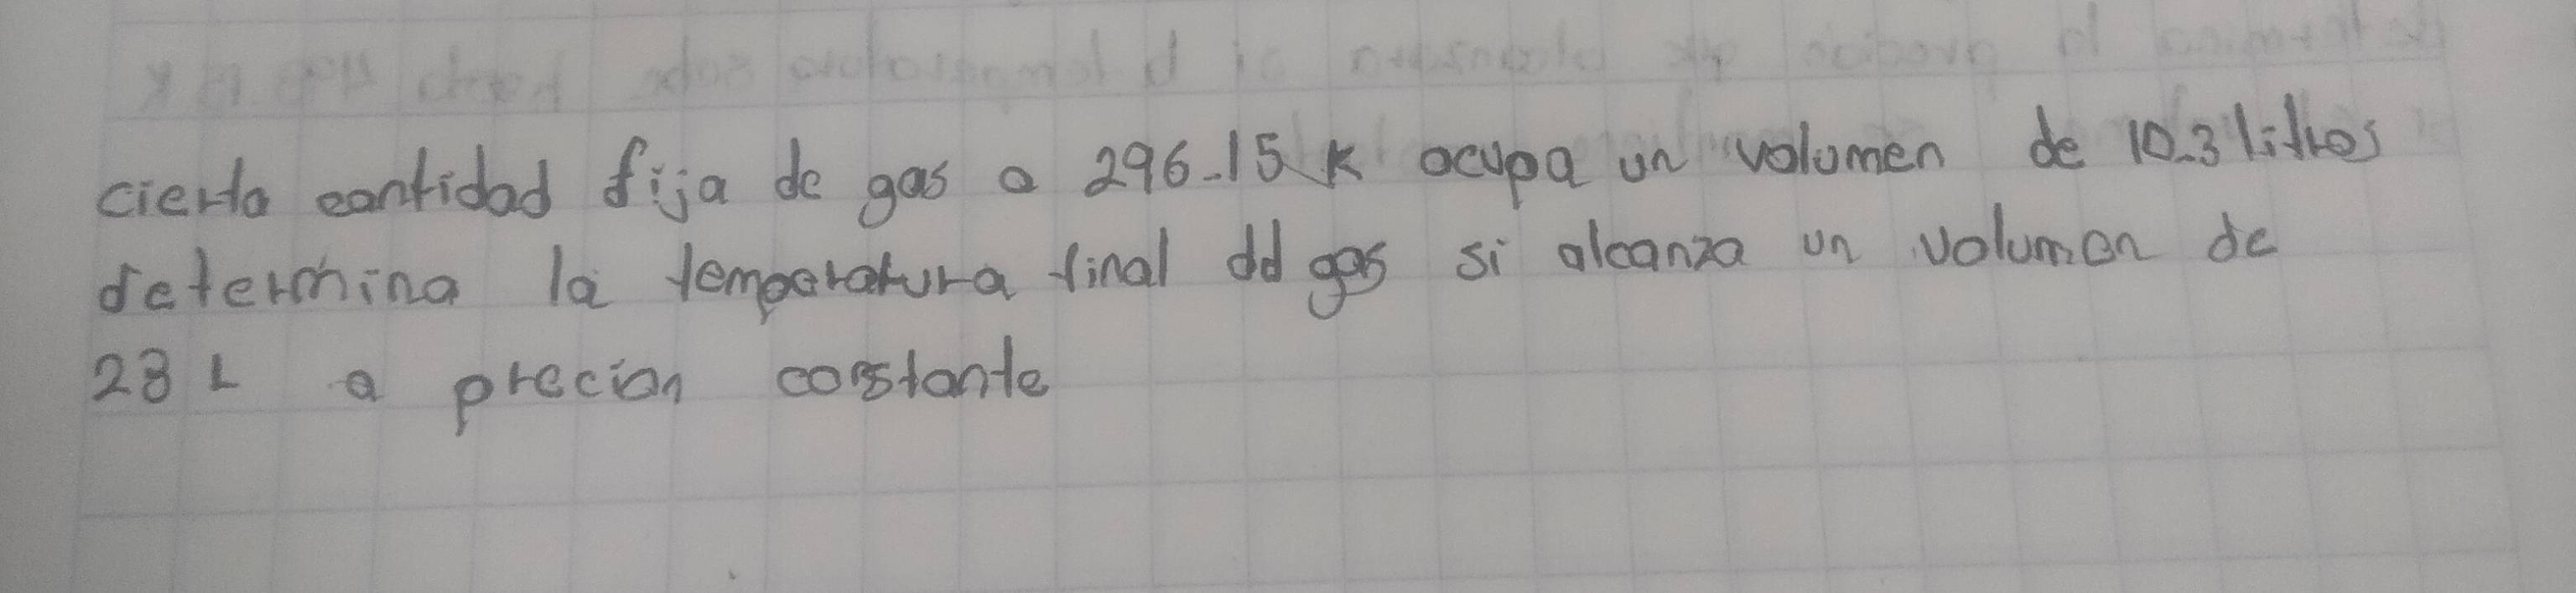 cierta cantidad fija de gas a 296.15 K ocupa un volumen de 10.3 litros
determina la temperatura final del gas si alcanza un volumen de
23 L a precion constante